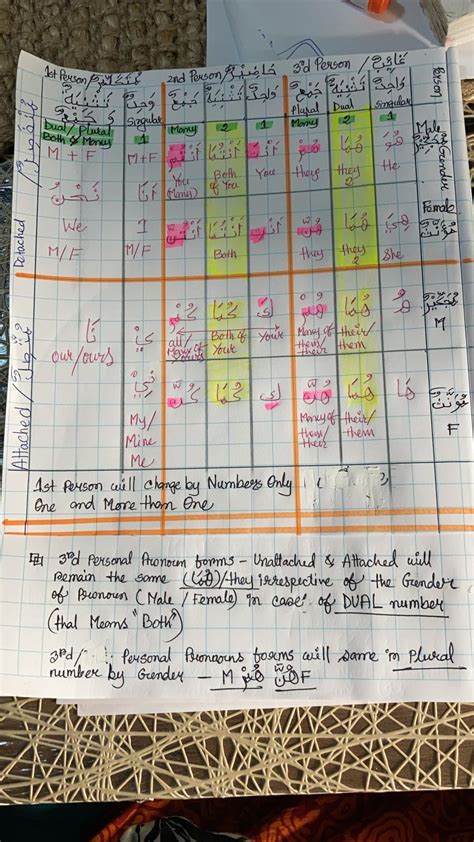 1st Person / مُتَكَلِّمٌ 2nd Person / حَاضِرٌ 3rd Person / غَائِبٌ Person
تَثْنِيَةٌ وَ جَمْعٌ وَاحِدٌ جَمْعٌ تَثْنِيَةٌ وَاحِدٌ جَمْعٌ تَثْنِيَةٌ وَاحِدٌ
Plural Dual Singular
Dual/Plural Singular
Both & Many 1 Many 2 1 Many 2 1 Male Gender
M + F M+F أَنْتُمْ أَنْتُمَا أَنْتَ هُمْ هُمَا هُوَ
نَحْنُ أَنَا You (Many) Both of You You they they 2 He
We I أَنْتُنَّ أَنْتُمَا أَنْتِ هُنَّ هُمَا هِيَ Female مُؤَنَّثٌ
M/F M/F Both they they 2 She
Detached / مُنْفَصِلٌ
نَا يْ كُمْ كُمَا كَ هُمْ هُمَا هُ مُذَكَّرٌ
our/ours all/ Many of Yours Both of Your Your Many of them/ their their/ them M
نِيْ كُنَّ كُمَا كِ هُنَّ هُمَا هَا مُؤَنَّثٌ
My/ Mine Me Many of them/ their their/ them F
Attached / مُتَّصِلٌ
1st Person will change by Numbers Only
One and More than One
3rd Personal Pronoun forms - Unattached & Attached will
remain the same (هُمَا)/they irrespective of the Gender
of Pronoun (Male / Female) in case of DUAL number
(that Means "Both")
3rd / Personal Pronouns forms will same in Plural
number by Gender - M هُمْ هُنَّ F